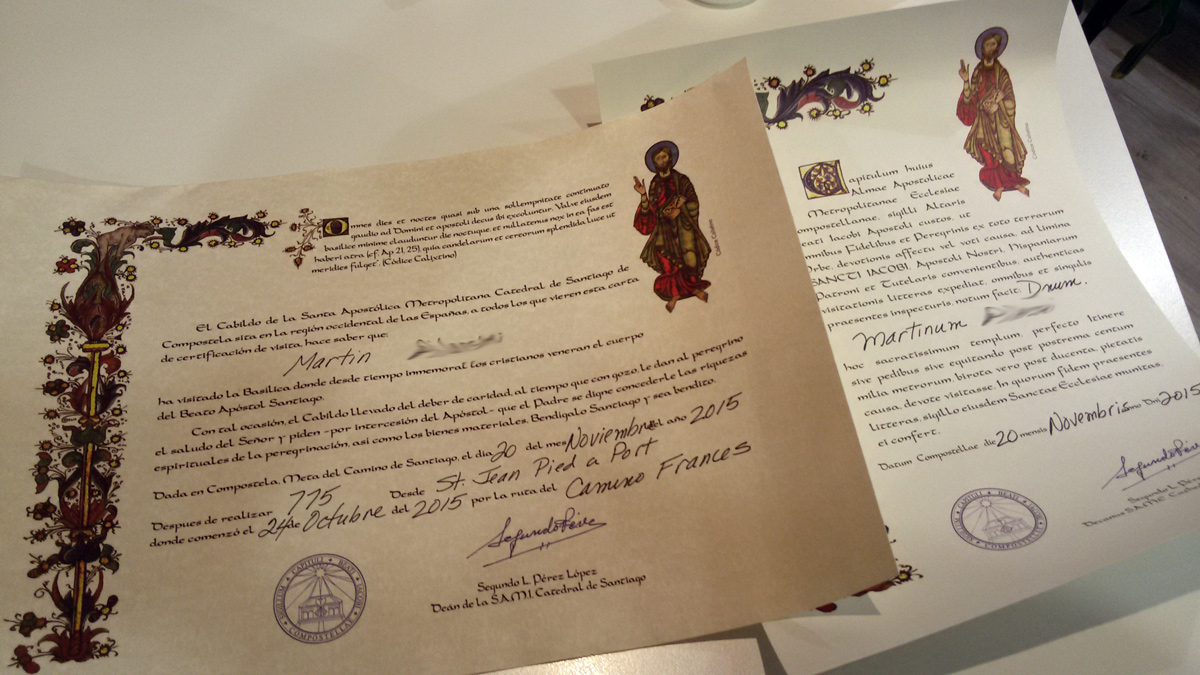 Omnes dies et noctes quasi sub una sollempnitate continuato
gaudio ad Domini et apostoli decus ibi excoluntur. Valve eiusdem
basilice minime clauduntur die noctuque, et nullatenus nox in ea fas est
haberi atra (cf. Ap 21, 25), quia candelarum et cereorum splendida luce ut
meridies fulget". (Códice Calixtino)
El Cabildo de la Santa Apostólica Metropolitana Catedral de Santiago de
Compostela sita en la región occidental de las Españas, a todos los que vieren esta carta
de certificación de visita, hace saber que:
Martin
ha visitado la Basílica donde desde tiempo inmemorial los cristianos veneran el cuerpo
del Beato Apóstol Santiago.
Con tal ocasión, el Cabildo llevado del deber de caridad, al tiempo que con gozo le dan al peregrino
el saludo del Señor y piden -por intercesión del Apóstol- que el Padre se digne concederle las riquezas
espirituales de la peregrinación, así como los bienes materiales. Bendígalo Santiago y sea bendito.
Dada en Compostela, Meta del Camino de Santiago, el día 20 del mes Noviembre del año 2015
Despues de realizar 775 Desde St. Jean Pied a Port
donde comenzó el 24 de Octubre del 2015 por la ruta del Camino Frances
Segundo L. Pérez López
Deán de la S.A.M.I. Catedral de Santiago
SIGILLUM CAPITULI BEATI IACOBI COMPOSTELLAE
Capitulum huius
Almae Apostolicae
Metropolitanae Ecclesiae
ompostellanae, sigilli Altaris
eati Iacobi Apostoli custos, ut
omnibus Fidelibus et Peregrinis ex toto terrarum
Orbe, devotionis affectu vel voti causa, ad limina
SANCTI IACOBI, Apostoli Nostri, Hispaniarum
Patroni et Tutelaris convenientibus, authenticas
visitationis litteras expediat, omnibus et singulis
praesentes inspecturis, notum facit: Dnum.
Martinum
hoc sacratissimum templum, perfecto Itinere
sive pedibus sive equitando post postrema centum
milia metrorum, birota vero post ducenta, pietatis
causa, devote visitasse. In quorum fidem praesentes
litteras, sigillo eiusdem Sanctae Ecclesiae munitas,
ei confert.
Datum Compostellae die 20 mensis Novembris anno Dni 2015
Segundo L. Pére
Decanus S.A.M.E. Cat